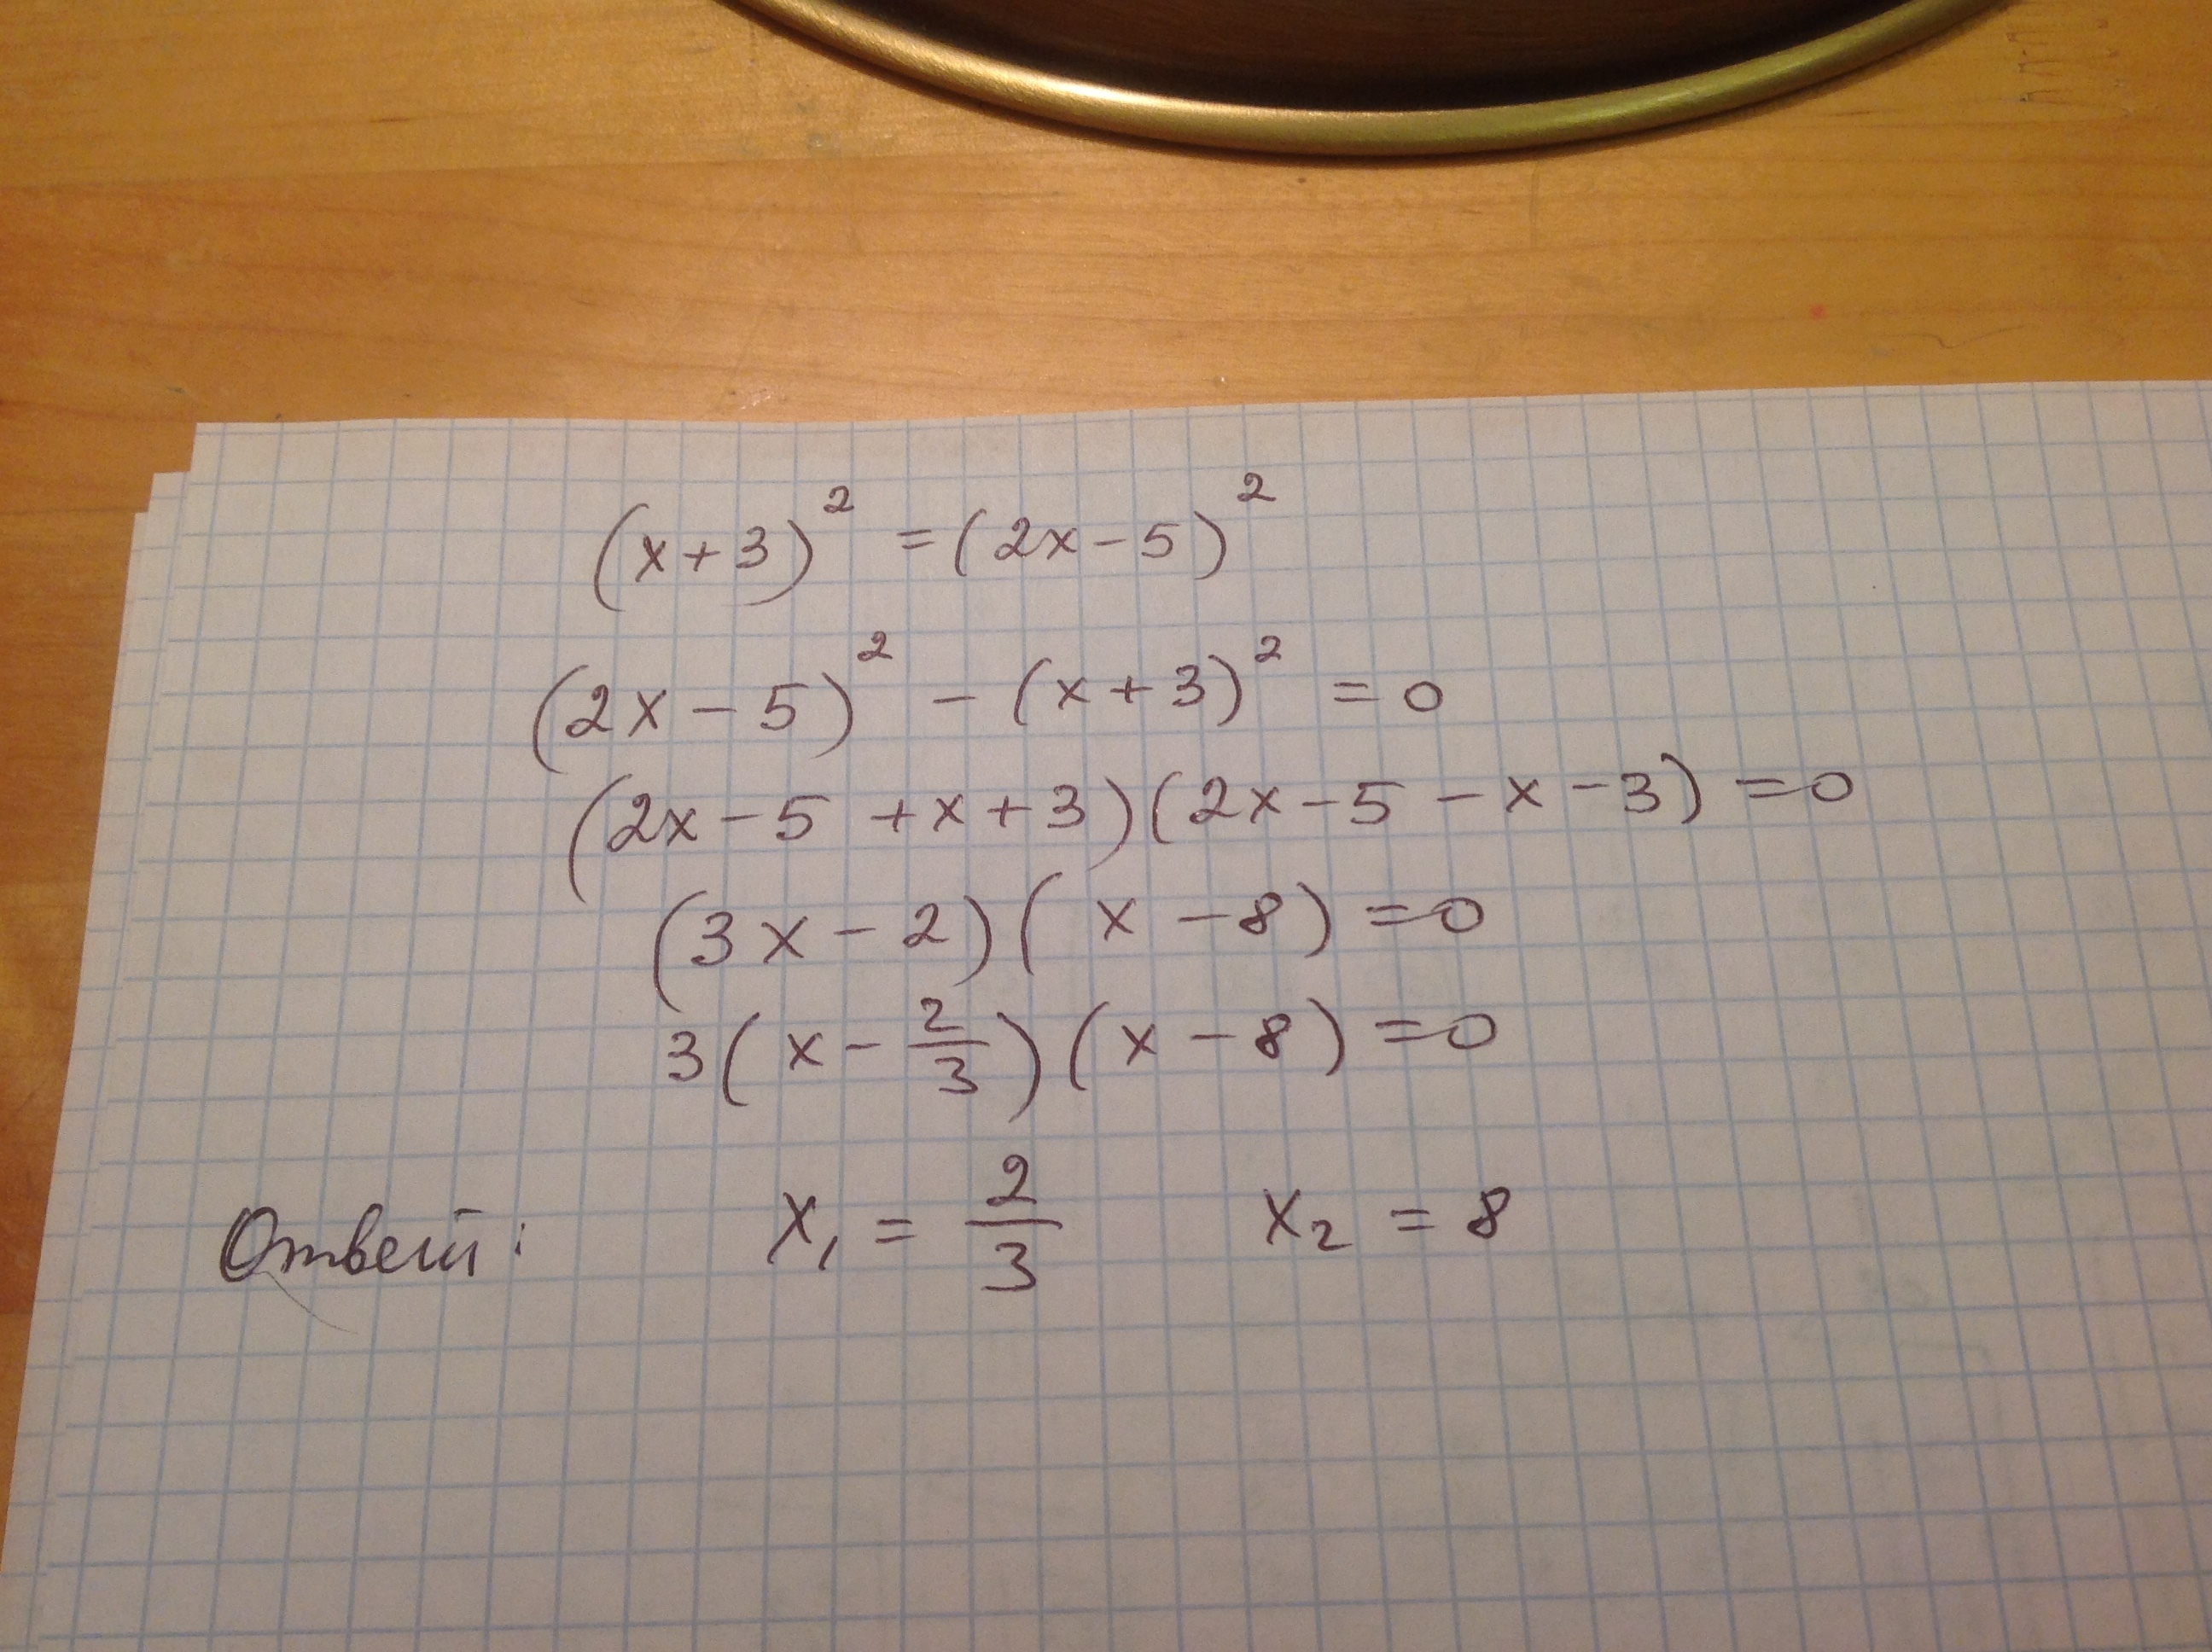 (x+3)² =(2x-5)²
(2x-5)² - (x+3)² =0
(2x-5 +x+3)(2x-5-x-3)=0
(3x-2)(x-8)=0
3(x-2/3)(x-8)=0
Ответ: x₁ = 2/3 x₂ = 8